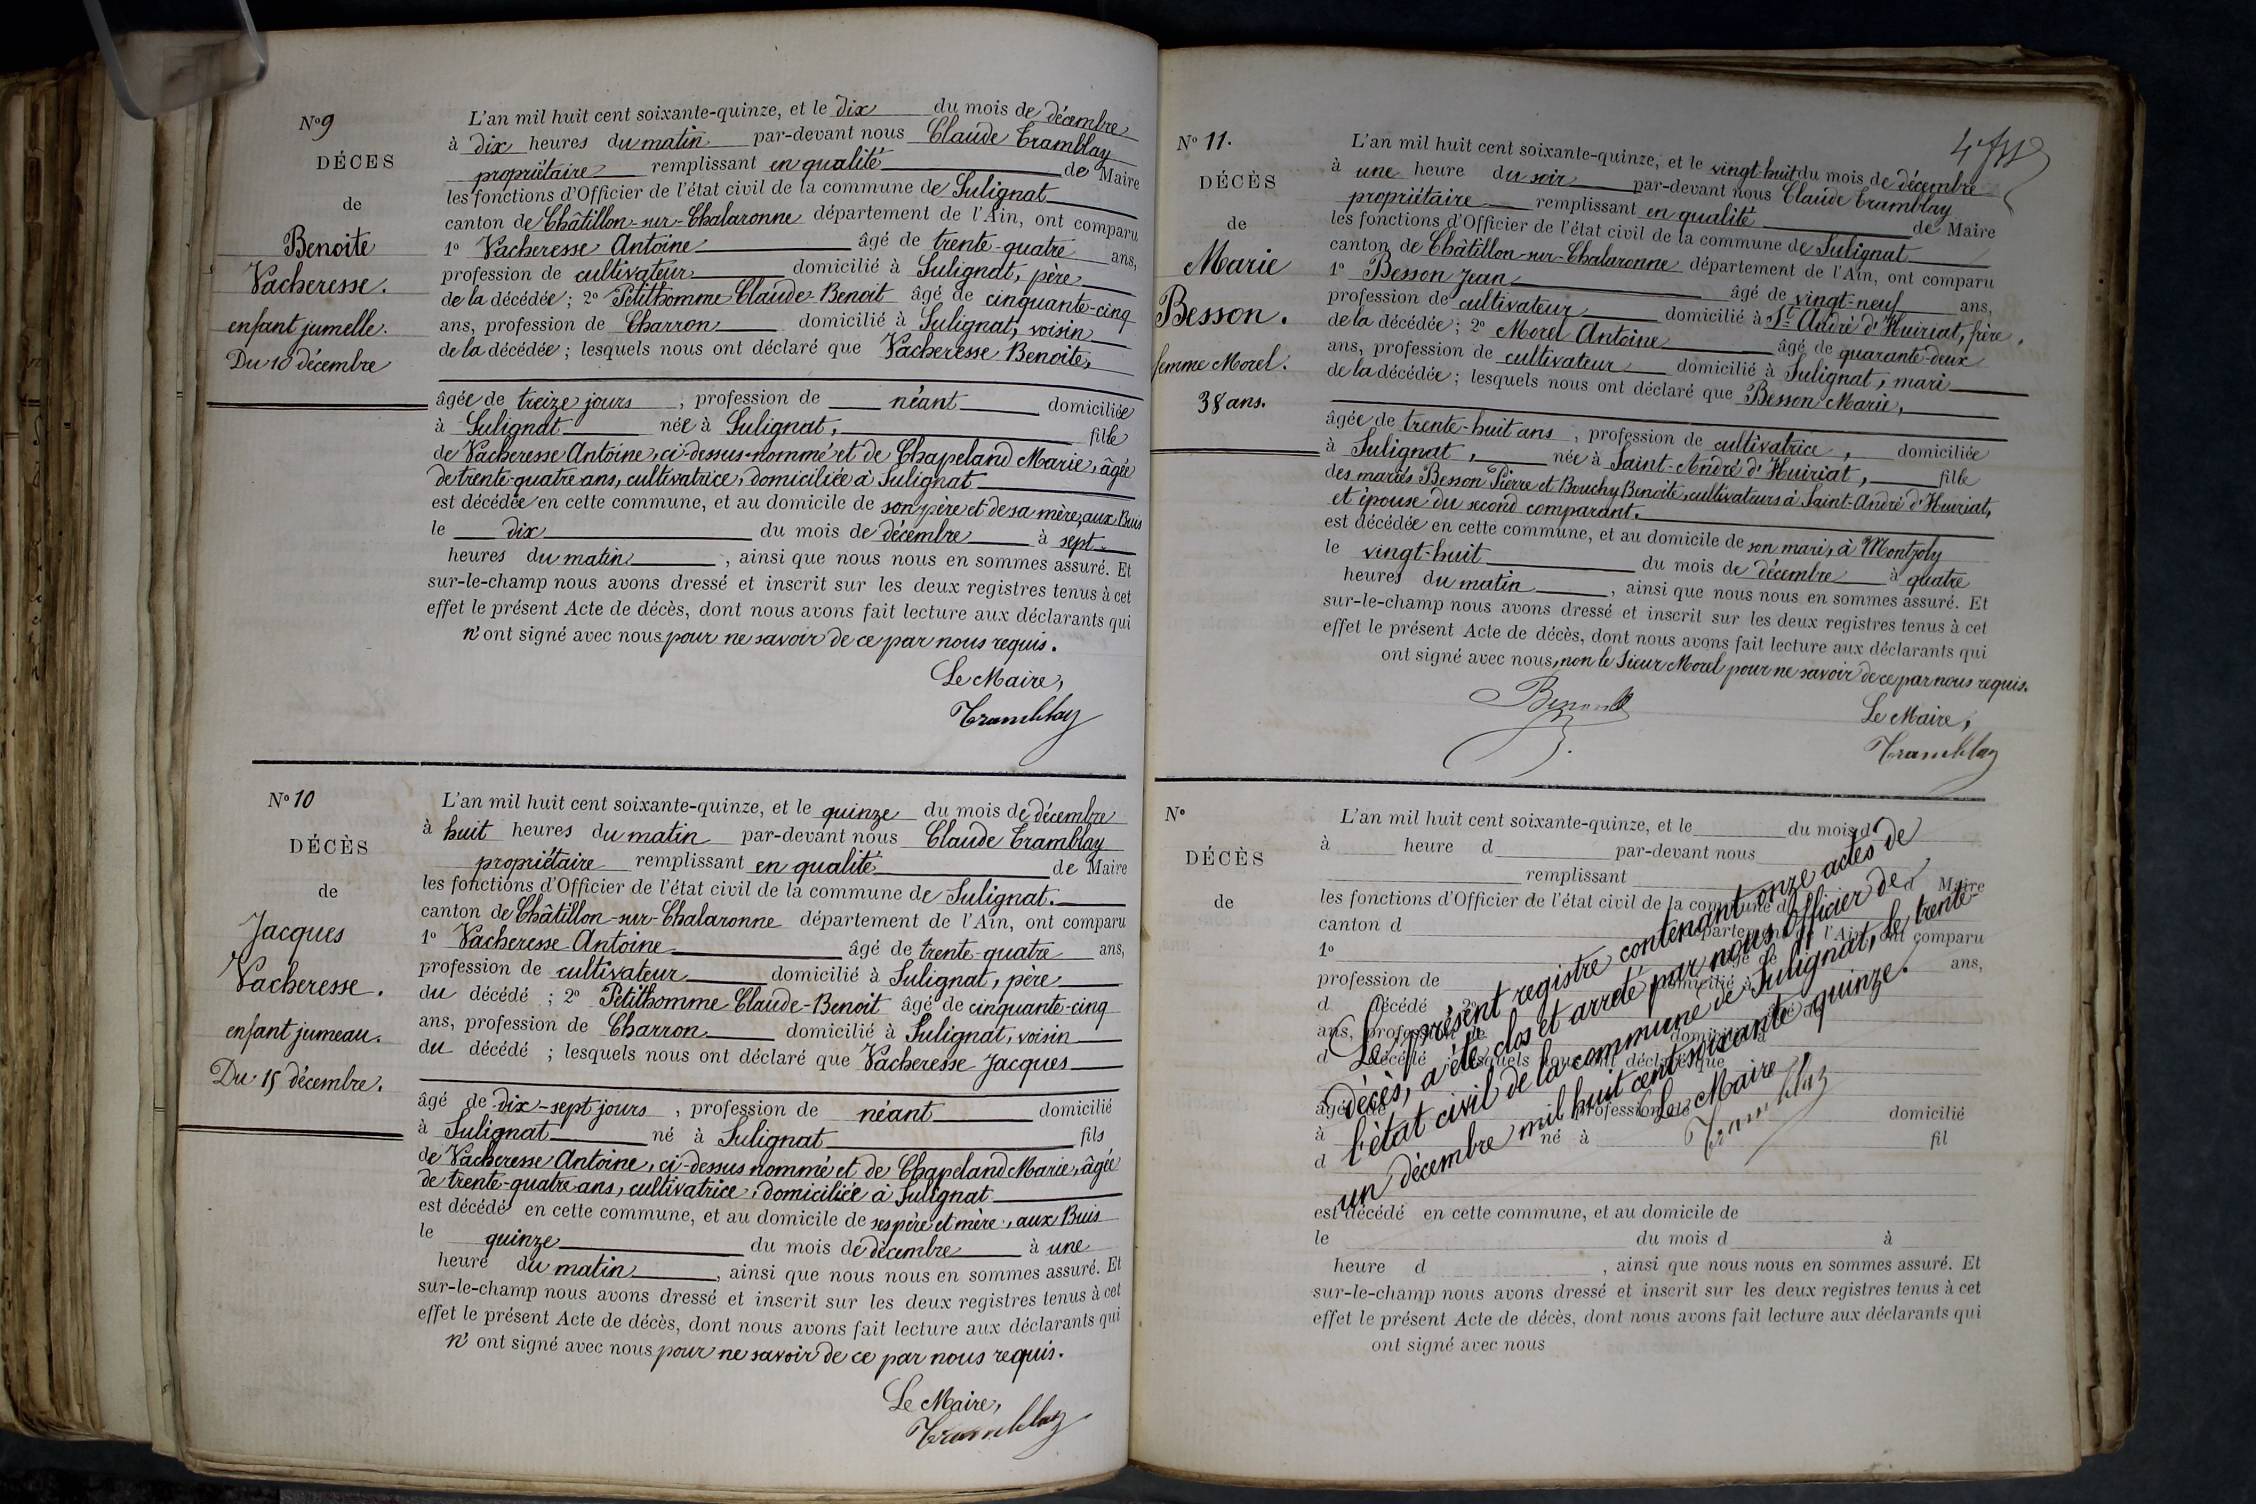 N° 9
DÉCES
de
Benoite
Vacheresse.
enfant jumelle.
Du 10 décembre
L'an mil huit cent soixante-quinze, et le dix du mois de décembre
à dix heures du matin par-devant nous Claude Tramblay
propriétaire remplissant en qualité de Maire
les fonctions d'Officier de l'état civil de la commune de Sulignat
canton de Châtillon-sur-Chalaronne département de l'Ain, ont comparu
1° Vacheresse Antoine âgé de trente-quatre ans,
profession de cultivateur domicilié à Sulignat, père
de la décédée ; 2° Petithomme Claude-Benoit âgé de cinquante-cinq
ans, profession de Charron domicilié à Sulignat, voisin
de la décédée ; lesquels nous ont déclaré que Vacheresse Benoite,
âgée de treize jours , profession de néant domiciliée
à Sulignat née à Sulignat, fille
de Vacheresse Antoine, ci-dessus nommé et de Chapeland Marie, âgée
de trente-quatre ans, cultivatrice, domiciliée à Sulignat
est décédée en cette commune, et au domicile de son père et de sa mère, aux Buis
le dix du mois de décembre à sept
heures du matin , ainsi que nous nous en sommes assuré. Et
sur-le-champ nous avons dressé et inscrit sur les deux registres tenus à cet
effet le présent Acte de décès, dont nous avons fait lecture aux déclarants qui
n'ont signé avec nous pour ne savoir de ce par nous requis.
Le Maire,
Tramblay
N° 10
DÉCÈS
de
Jacques
Vacheresse.
enfant jumeau.
Du 15 décembre.
L'an mil huit cent soixante-quinze, et le quinze du mois de décembre
à huit heures du matin par-devant nous Claude Tramblay
propriétaire remplissant en qualité de Maire
les fonctions d'Officier de l'état civil de la commune de Sulignat.
canton de Châtillon-sur-Chalaronne département de l'Ain, ont comparu
1° Vacheresse Antoine âgé de trente-quatre ans,
profession de cultivateur domicilié à Sulignat, père
du décédé ; 2° Petithomme Claude-Benoit âgé de cinquante-cinq
ans, profession de Charron domicilié à Sulignat, voisin
du décédé ; lesquels nous ont déclaré que Vacheresse Jacques
âgé de dix-sept jours , profession de néant domicilié
à Sulignat né à Sulignat fils
de Vacheresse Antoine, ci-dessus nommé et de Chapeland Marie, âgée
de trente-quatre ans, cultivatrice, domiciliée à Sulignat
est décédé en cette commune, et au domicile de ses père et mère, aux Buis
le quinze du mois de décembre à une
heure du matin , ainsi que nous nous en sommes assuré. Et
sur-le-champ nous avons dressé et inscrit sur les deux registres tenus à cet
effet le présent Acte de décès, dont nous avons fait lecture aux déclarants qui
n'ont signé avec nous pour ne savoir de ce par nous requis.
Le Maire,
Tramblay
N° 11.
DÉCÈS
de
Marie
Besson.
femme Morel.
38 ans.
L'an mil huit cent soixante-quinze, et le vingt-huit du mois de décembre
à une heure du soir par-devant nous Claude Tramblay
propriétaire remplissant en qualité de Maire
les fonctions d'Officier de l'état civil de la commune de Sulignat
canton de Châtillon-sur-Chalaronne département de l'Ain, ont comparu
1° Besson Jean âgé de vingt-neuf ans,
profession de cultivateur domicilié à St André d'Huiriat, frère
de la décédée ; 2° Morel Antoine âgé de quarante-deux
ans, profession de cultivateur domicilié à Sulignat, mari
de la décédée ; lesquels nous ont déclaré que Besson Marie,
âgée de trente-huit ans , profession de cultivatrice, domiciliée
à Sulignat, née à Saint-André d'Huiriat, fille
des mariés Besson Pierre et Bouchy Benoite, cultivateurs à Saint-André d'Huiriat,
et épouse du second comparant.
est décédée en cette commune, et au domicile de son mari, à Montzoly
le vingt-huit du mois de décembre à quatre
heures du matin , ainsi que nous nous en sommes assuré. Et
sur-le-champ nous avons dressé et inscrit sur les deux registres tenus à cet
effet le présent Acte de décès, dont nous avons fait lecture aux déclarants qui
ont signé avec nous, non le Sieur Morel pour ne savoir de ce par nous requis.
Le Maire,
Tramblay
N°
DÉCÈS
de
L'an mil huit cent soixante-quinze, et le du mois d
à heure d par-devant nous
remplissant d Maire
les fonctions d'Officier de l'état civil de la commune d
canton d département de l'Ain, ont comparu
1° âgé de ans,
profession de domicilié à
d décédé ; 2° âgé de
ans, profession de domicilié à
d décédé ; lesquels nous ont déclaré que
âgé de , profession de domicilié
à né à fil
d
est décédé en cette commune, et au domicile de
le du mois d à
heure d , ainsi que nous nous en sommes assuré. Et
sur-le-champ nous avons dressé et inscrit sur les deux registres tenus à cet
effet le présent Acte de décès, dont nous avons fait lecture aux déclarants qui
ont signé avec nous
Le présent registre contenant onze actes de
décès, a été clos et arrêté par nous Officier de
l'état civil de la commune de Sulignat, le trente-
un décembre mil huit cent soixante-quinze.
Le Maire,
Tramblay